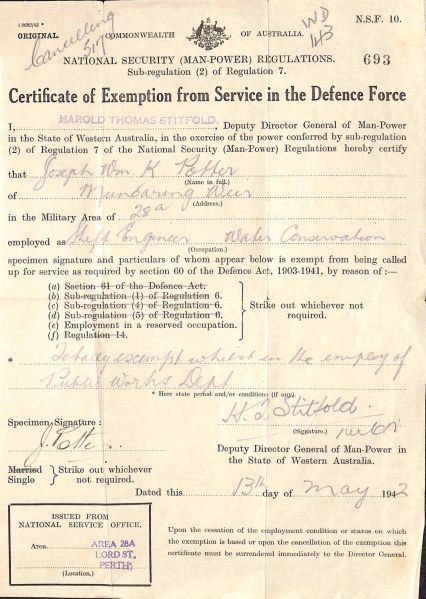 1 9682/42 *
N.S.F. 10.
ORIGINAL.
Cancelling
517
COMMONWEALTH OF AUSTRALIA.
WD
143
NATIONAL SECURITY (MAN-POWER) REGULATIONS.
693
Sub-regulation (2) of Regulation 7.
Certificate of Exemption from Service in the Defence Force
I, HAROLD THOMAS STITFOLD, Deputy Director General of Man-Power
in the State of Western Australia, in the exercise of the power conferred by sub-regulation
(2) of Regulation 7 of the National Security (Man-Power) Regulations hereby certify
that Joseph Wm K Potter
(Name in full.)
of Mundaring Weir
(Address.)
in the Military Area of 28a
employed as Shift Engineer Water Conservation
(Occupation.)
specimen signature and particulars of whom appear below is exempt from being called
up for service as required by section 60 of the Defence Act, 1903-1941, by reason of :—
(a) Section 61 of the Defence Act.
(b) Sub-regulation (1) of Regulation 6.
(c) Sub-regulation (4) of Regulation 6.
(d) Sub-regulation (5) of Regulation 6.
(e) Employment in a reserved occupation.
(f) Regulation 14.
Strike out whichever not
required.
* Totally exempt whilst in the employ of
Public Works Dept
* Here state period and/or conditions (if any).
Specimen Signature :
H T Stitfold.
(Signature.)
J. Potter
Deputy Director General of Man-Power in
the State of Western Australia.
Married
Single
Strike out whichever
not required.
Dated this 13th day of May 1942
ISSUED FROM
NATIONAL SERVICE OFFICE.
Area AREA 28A
LORD ST,
PERTH
(Location.)
Upon the cessation of the employment condition or status on which
the exemption is based or upon the cancellation of the exemption
this certificate must be surrendered immediately to the Director General.